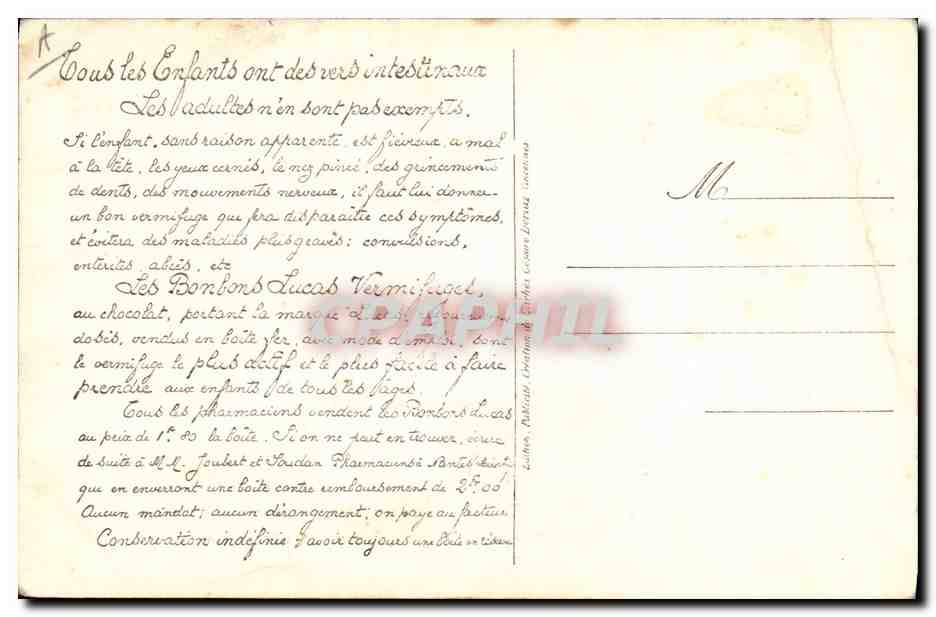 A
Tous les Enfants ont des vers intestinaux
Les adultes n'en sont pas exempts.
Si l'enfant, sans raison apparente, est fiévreux, a mal
à la tête, les yeux cernés, le nez pincé, des grincements
de dents, des mouvements nerveux, il faut lui donner
un bon vermifuge que fera disparaître ces symptômes,
et évitera des maladies plus graves: convulsions,
entérites, abcès, etc
Les Bonbons Lucas Vermifuges,
au chocolat, portant la marque
dosés, vendus en boîte fer, avec mode d'emploi, sont
le vermifuge le plus actif et le plus facile à faire
prendre aux enfants de tous les âges.
Tous les pharmaciens vendent les Bonbons Lucas
au prix de 1fr 80 la boîte. Si on ne peut en trouver, écrire
de suite à M.M. Joubert et Soudan Pharmaciens à Nantes
qui en enverront une boîte contre remboursement de 2fr 00
Aucun mandat; aucun dérangement; on paye au facteur
Conservation indéfinie; avoir toujours une boîte en réserve
CPAPHIL
Edition, Publicité, Création de Cartes
M